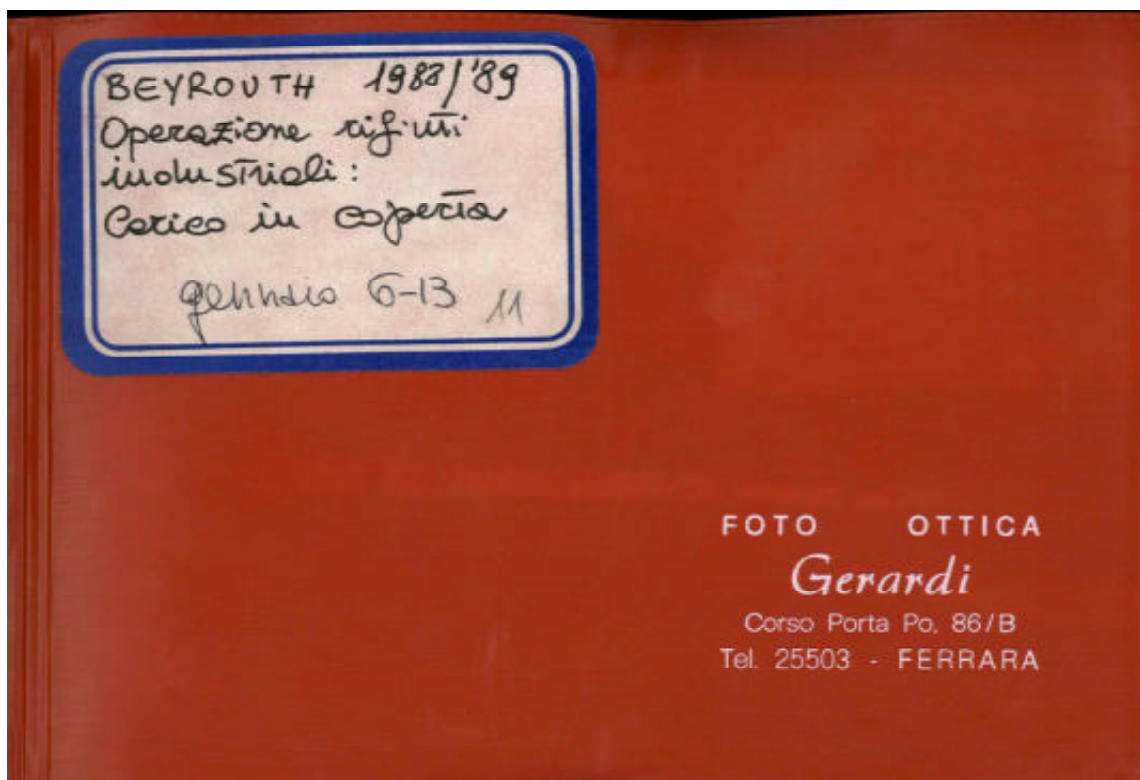 BEYROUTH 1988/'89
Operazione rifiuti
industriali:
Carico in coperta
gennaio 6-13 11
FOTO OTTICA
Gerardi
Corso Porta Po, 86/B
Tel. 25503 - FERRARA